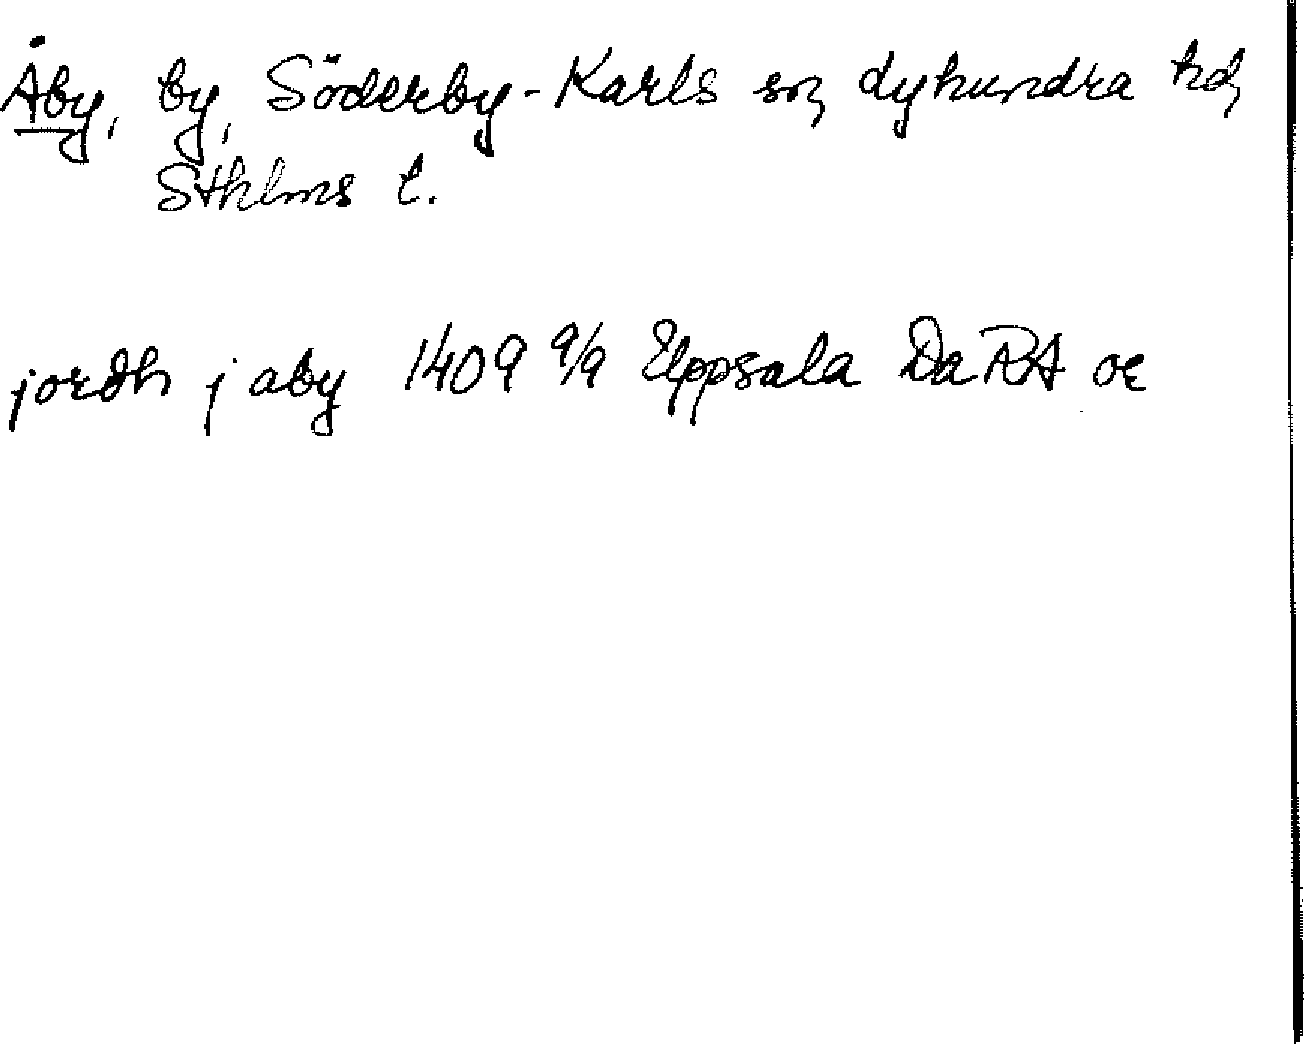 Åby, by, Söderby-Karls sn, Lyhundra hd,
Sthlms l.
jordh j aby 1409 9/9 Uppsala DaRA or